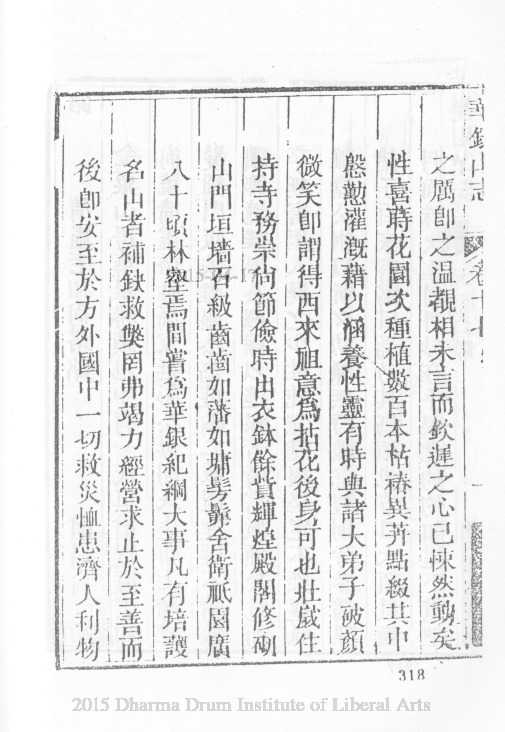 華銀山志 卷十七
之厲卽之溫覩相未言而欽遲之心已悚然動矣
性喜蒔花園次種植數百本枯椿異卉點綴其中
慇懃灌漑藉以涵養性靈有時與諸大弟子破顏
微笑卽謂得西來祖意爲拈花後身可也壯嵗住
持寺務崇尙節儉時出衣鉢餘貲輝煌殿閣修砌
山門垣墻石級齒齒如藩如墉髣髴舍衞祇園廣
八十頃林壑焉間嘗爲華銀紀綱大事凡有培護
名山者補缺救獘罔弗竭力經營求止於至善而
後卽安至於方外國中一切救災恤患濟人利物
318
2015 Dharma Drum Institute of Liberal Arts